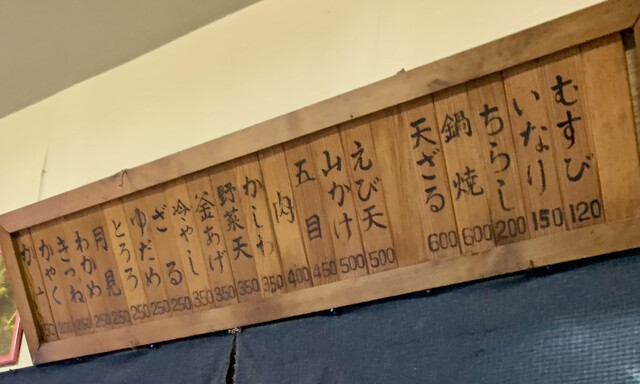 むすび 120
いなり 150
ちらし 200
鍋焼 600
天ざる 600
えび天 500
山かけ 500
五目 450
肉 400
かしわ 350
野菜天 350
釜あげ 350
冷やし 350
ざる 250
ゆだめ 250
とろろ 250
月見 250
わかめ 250
きつね
かやく